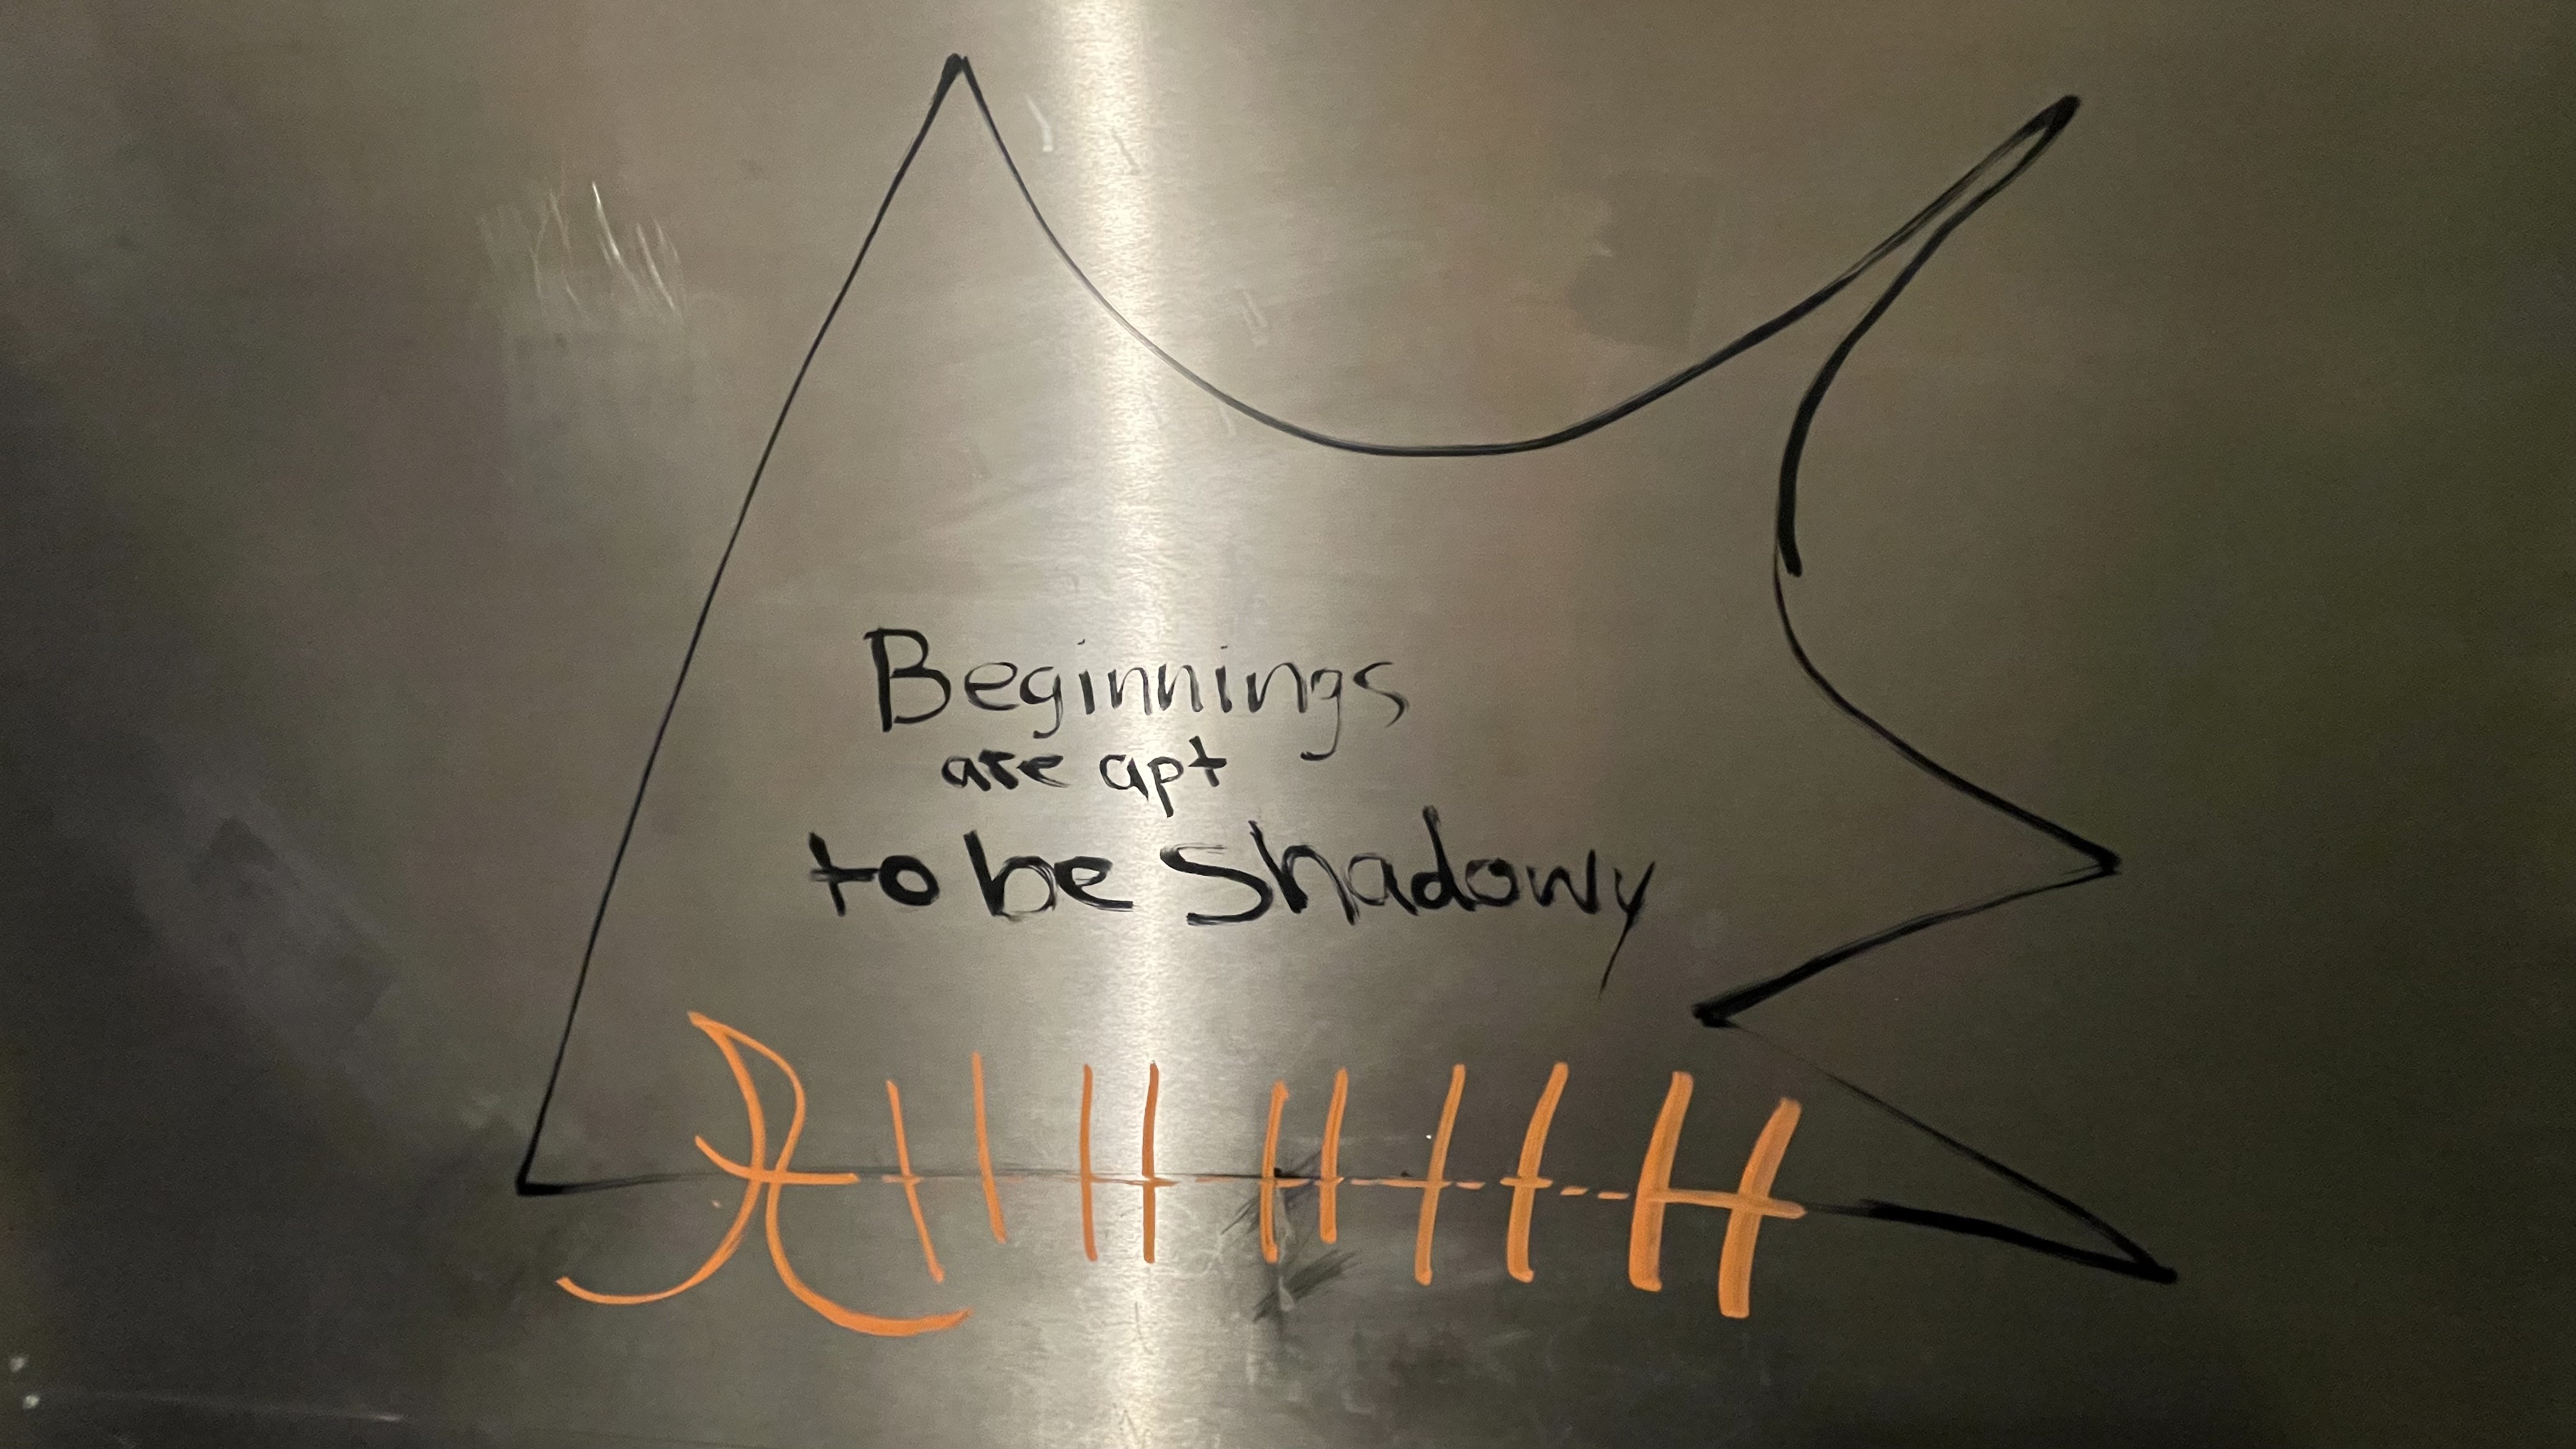 Beginnings
are apt
to be shadowy